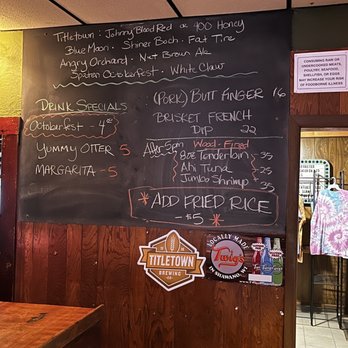 Titletown : Johnny Blood Red or 400 Honey
Blue Moon . Shiner Boch . Fat Tire
Angry Orchard . Nut Brown Ale
Spaten Octoberfest . White Claw
DRINK SPECIALS
Octoberfest - 4
YUMMY OTTER 5
MARGARITA - 5
(PORK) BUTT FINGER 16
BRISKET FRENCH
DIP 22
After 5pm Wood-Fired
8oz Tenderloin 35
Ahi Tuna 25
Jumbo Shrimp 35
* ADD FRIED RICE *
- $5
CONSUMING RAW OR
UNDERCOOKED MEATS,
POULTRY, SEAFOOD,
SHELLFISH, OR EGGS
MAY INCREASE YOUR RISK
OF FOODBORNE ILLNESS
TITLETOWN
BREWING
LOCALLY MADE
Twig's
IN SHAWANO, WI